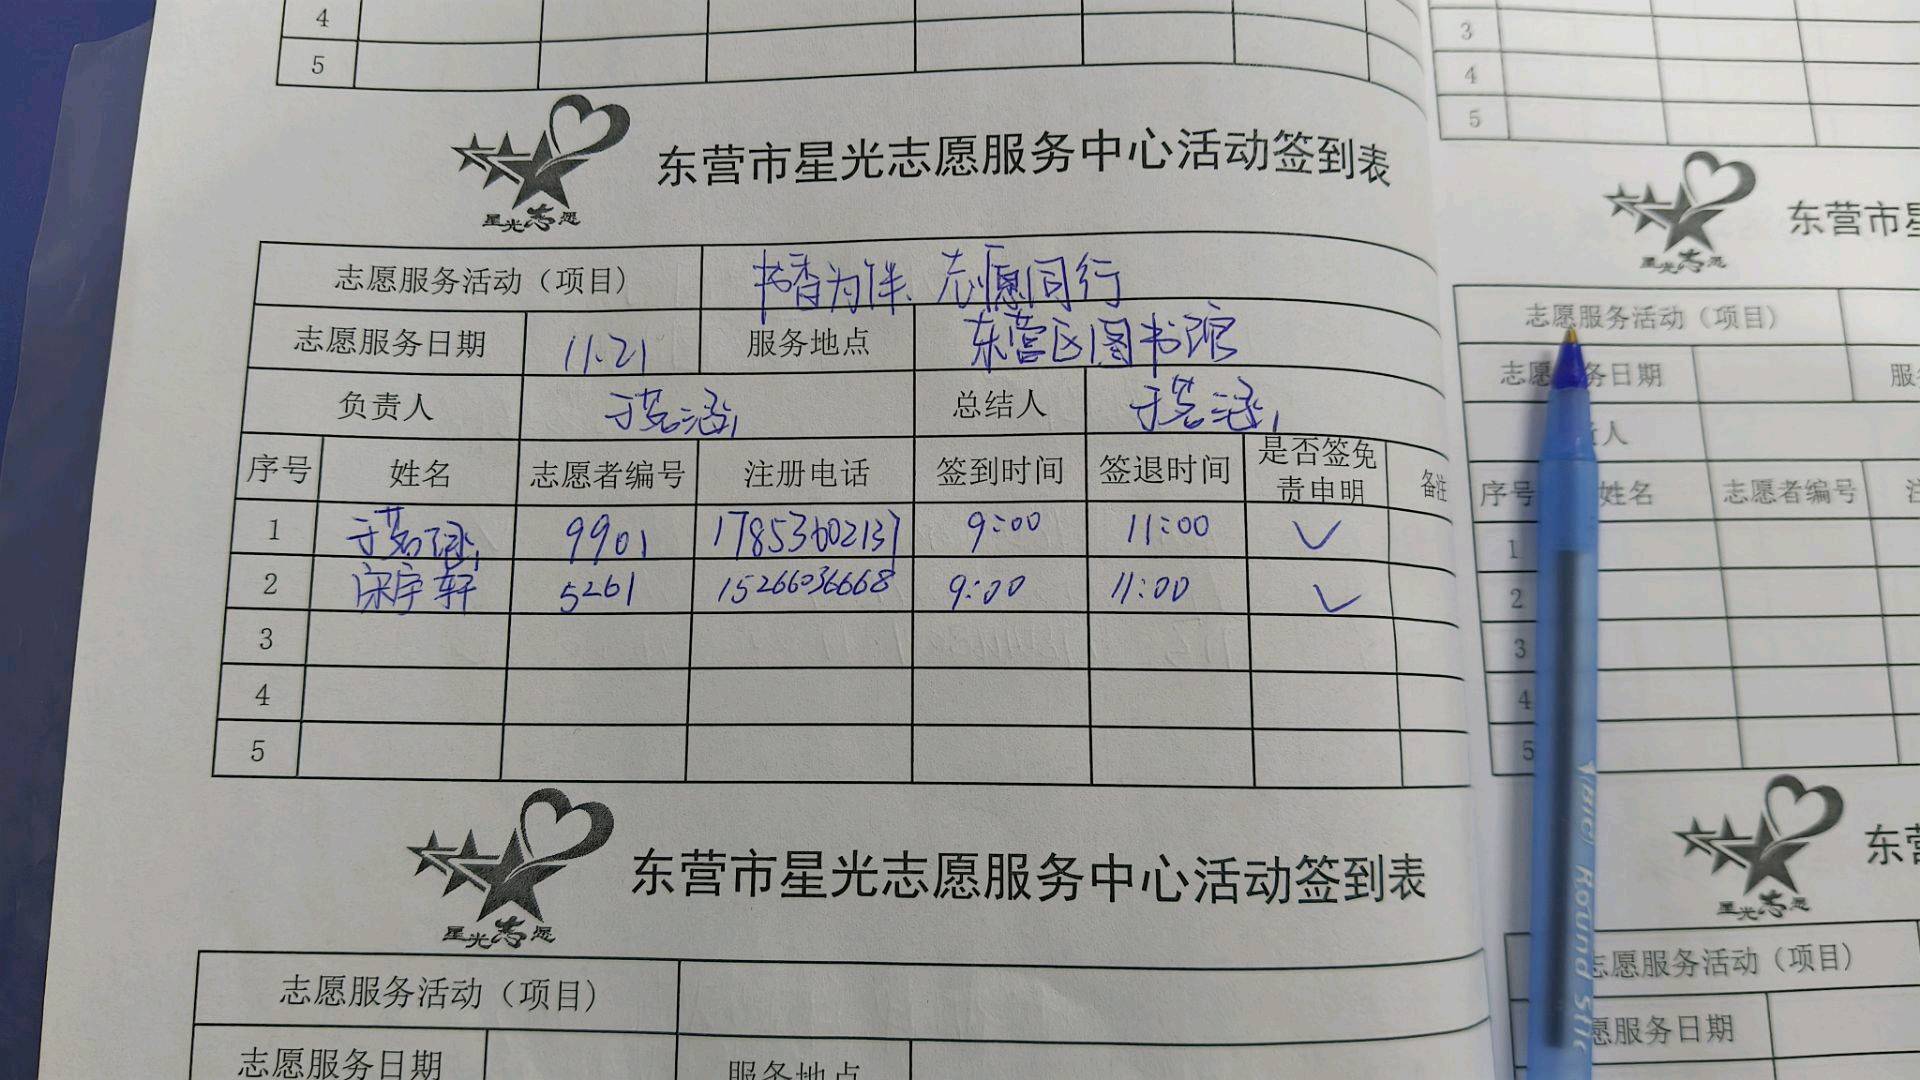 4
5
星光志愿
东营市星光志愿服务中心活动签到表
志愿服务活动（项目） 书香为伴、志愿同行
志愿服务日期 11.21 服务地点 东营区图书馆
负责人 于茗涵 总结人 于茗涵
序号 姓名 志愿者编号 注册电话 签到时间 签退时间 是否签免责申明 备注
1 于茗涵 9901 17853602137 9:00 11:00 ✓
2 宋宇轩 5261 15266036668 9:00 11:00 ✓
3
4
5
星光志愿
东营市星光志愿服务中心活动签到表
志愿服务活动（项目）
志愿服务日期 服务地点
3
4
5
星光志愿
东营市星
志愿服务活动（项目）
志愿 务日期 服
人
序号 姓名 志愿者编号
1
2
3
4
5
BIC Round Stic
星光志愿
东营
志愿服务活动（项目）
愿服务日期